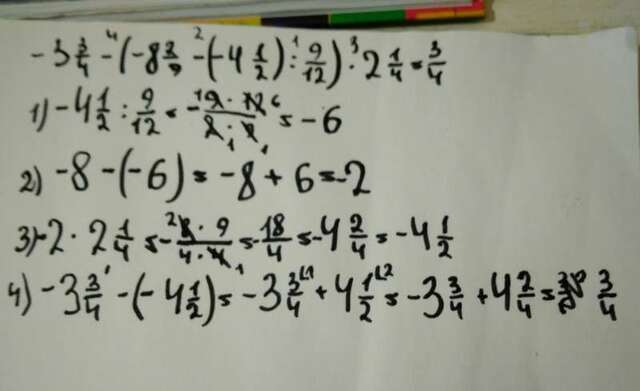 -3 3/4 -⁴ (-8 -² (-4 1/2) :¹ 9/12) ·³ 2 1/4 = 3/4
1) -4 1/2 : 9/12 = -9 · 12 6/2 · 9 = -6
2) -8 - (-6) = -8 + 6 = -2
3) -2 · 2 1/4 = - 2 · 9/4 · 1 = -18/4 = -4 2/4 = -4 1/2
4) -3 3/4 - (-4 1/2) = -3 3/4 + 4 1/2 = -3 3/4 + 4 2/4 = 3/4